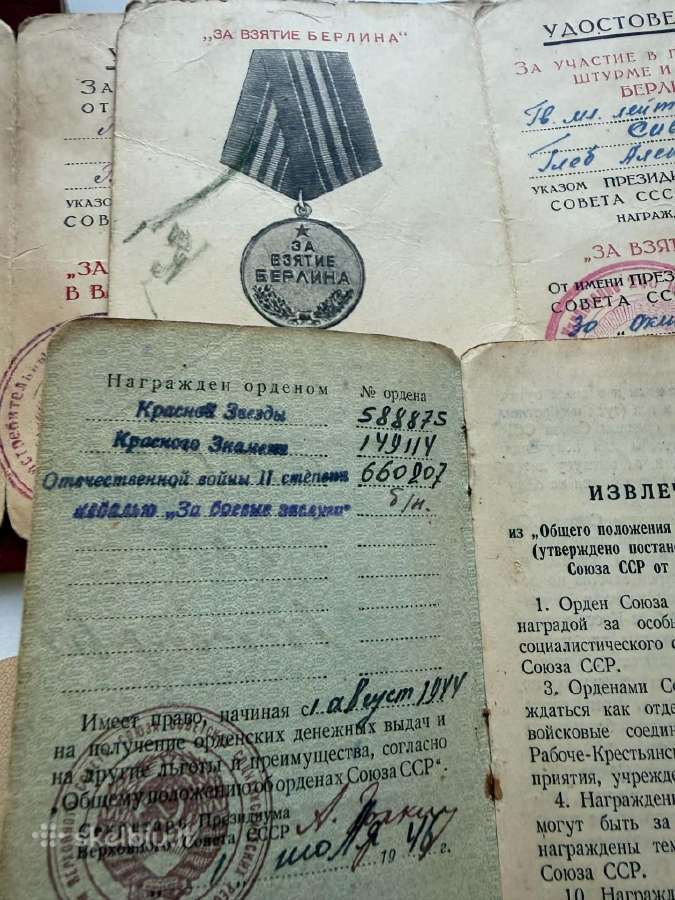 „ЗА ВЗЯТИЕ БЕРЛИНА“
ЗА
ВЗЯТИЕ
БЕРЛИНА
ЗА
ОТ
УКАЗО
СОВЕТ
„ЗА
В В
УДОСТОВЕ
ЗА УЧАСТИЕ В
ШТУРМЕ И
БЕРЛ
Гв. мл. лейт
Глеб Алек
УКАЗОМ ПРЕЗИД
СОВЕТА ССС
НАГРАЖ
„ЗА ВЗЯ
ОТ ИМЕНИ ПРЕЗ
СОВЕТА СС
Награжден орденом № ордена
Красной Звезды 588875
Красного Знамени 149114
Отечественной войны II степени 660207
медалью „За боевые заслуги“ б/н.
Имеет право, начиная с 1 август 1944
на получение орденских денежных выдач и
на другие льготы и преимущества, согласно
„Общему положению об орденах Союза ССР“.
Секретарь Президиума
Верховного Совета СССР
19 г.
ИЗВЛЕЧ
из „Общего положения
(утверждено постан
Союза ССР от
1. Орден Союза
наградой за особы
социалистического с
Союза ССР.
3. Орденами Со
ждаться как отде
войсковые соедин
Рабоче-Крестьянск
приятия, учрежде
4. Награжденн
могут быть за
награждены тем
Союза ССР.
10. Награжд